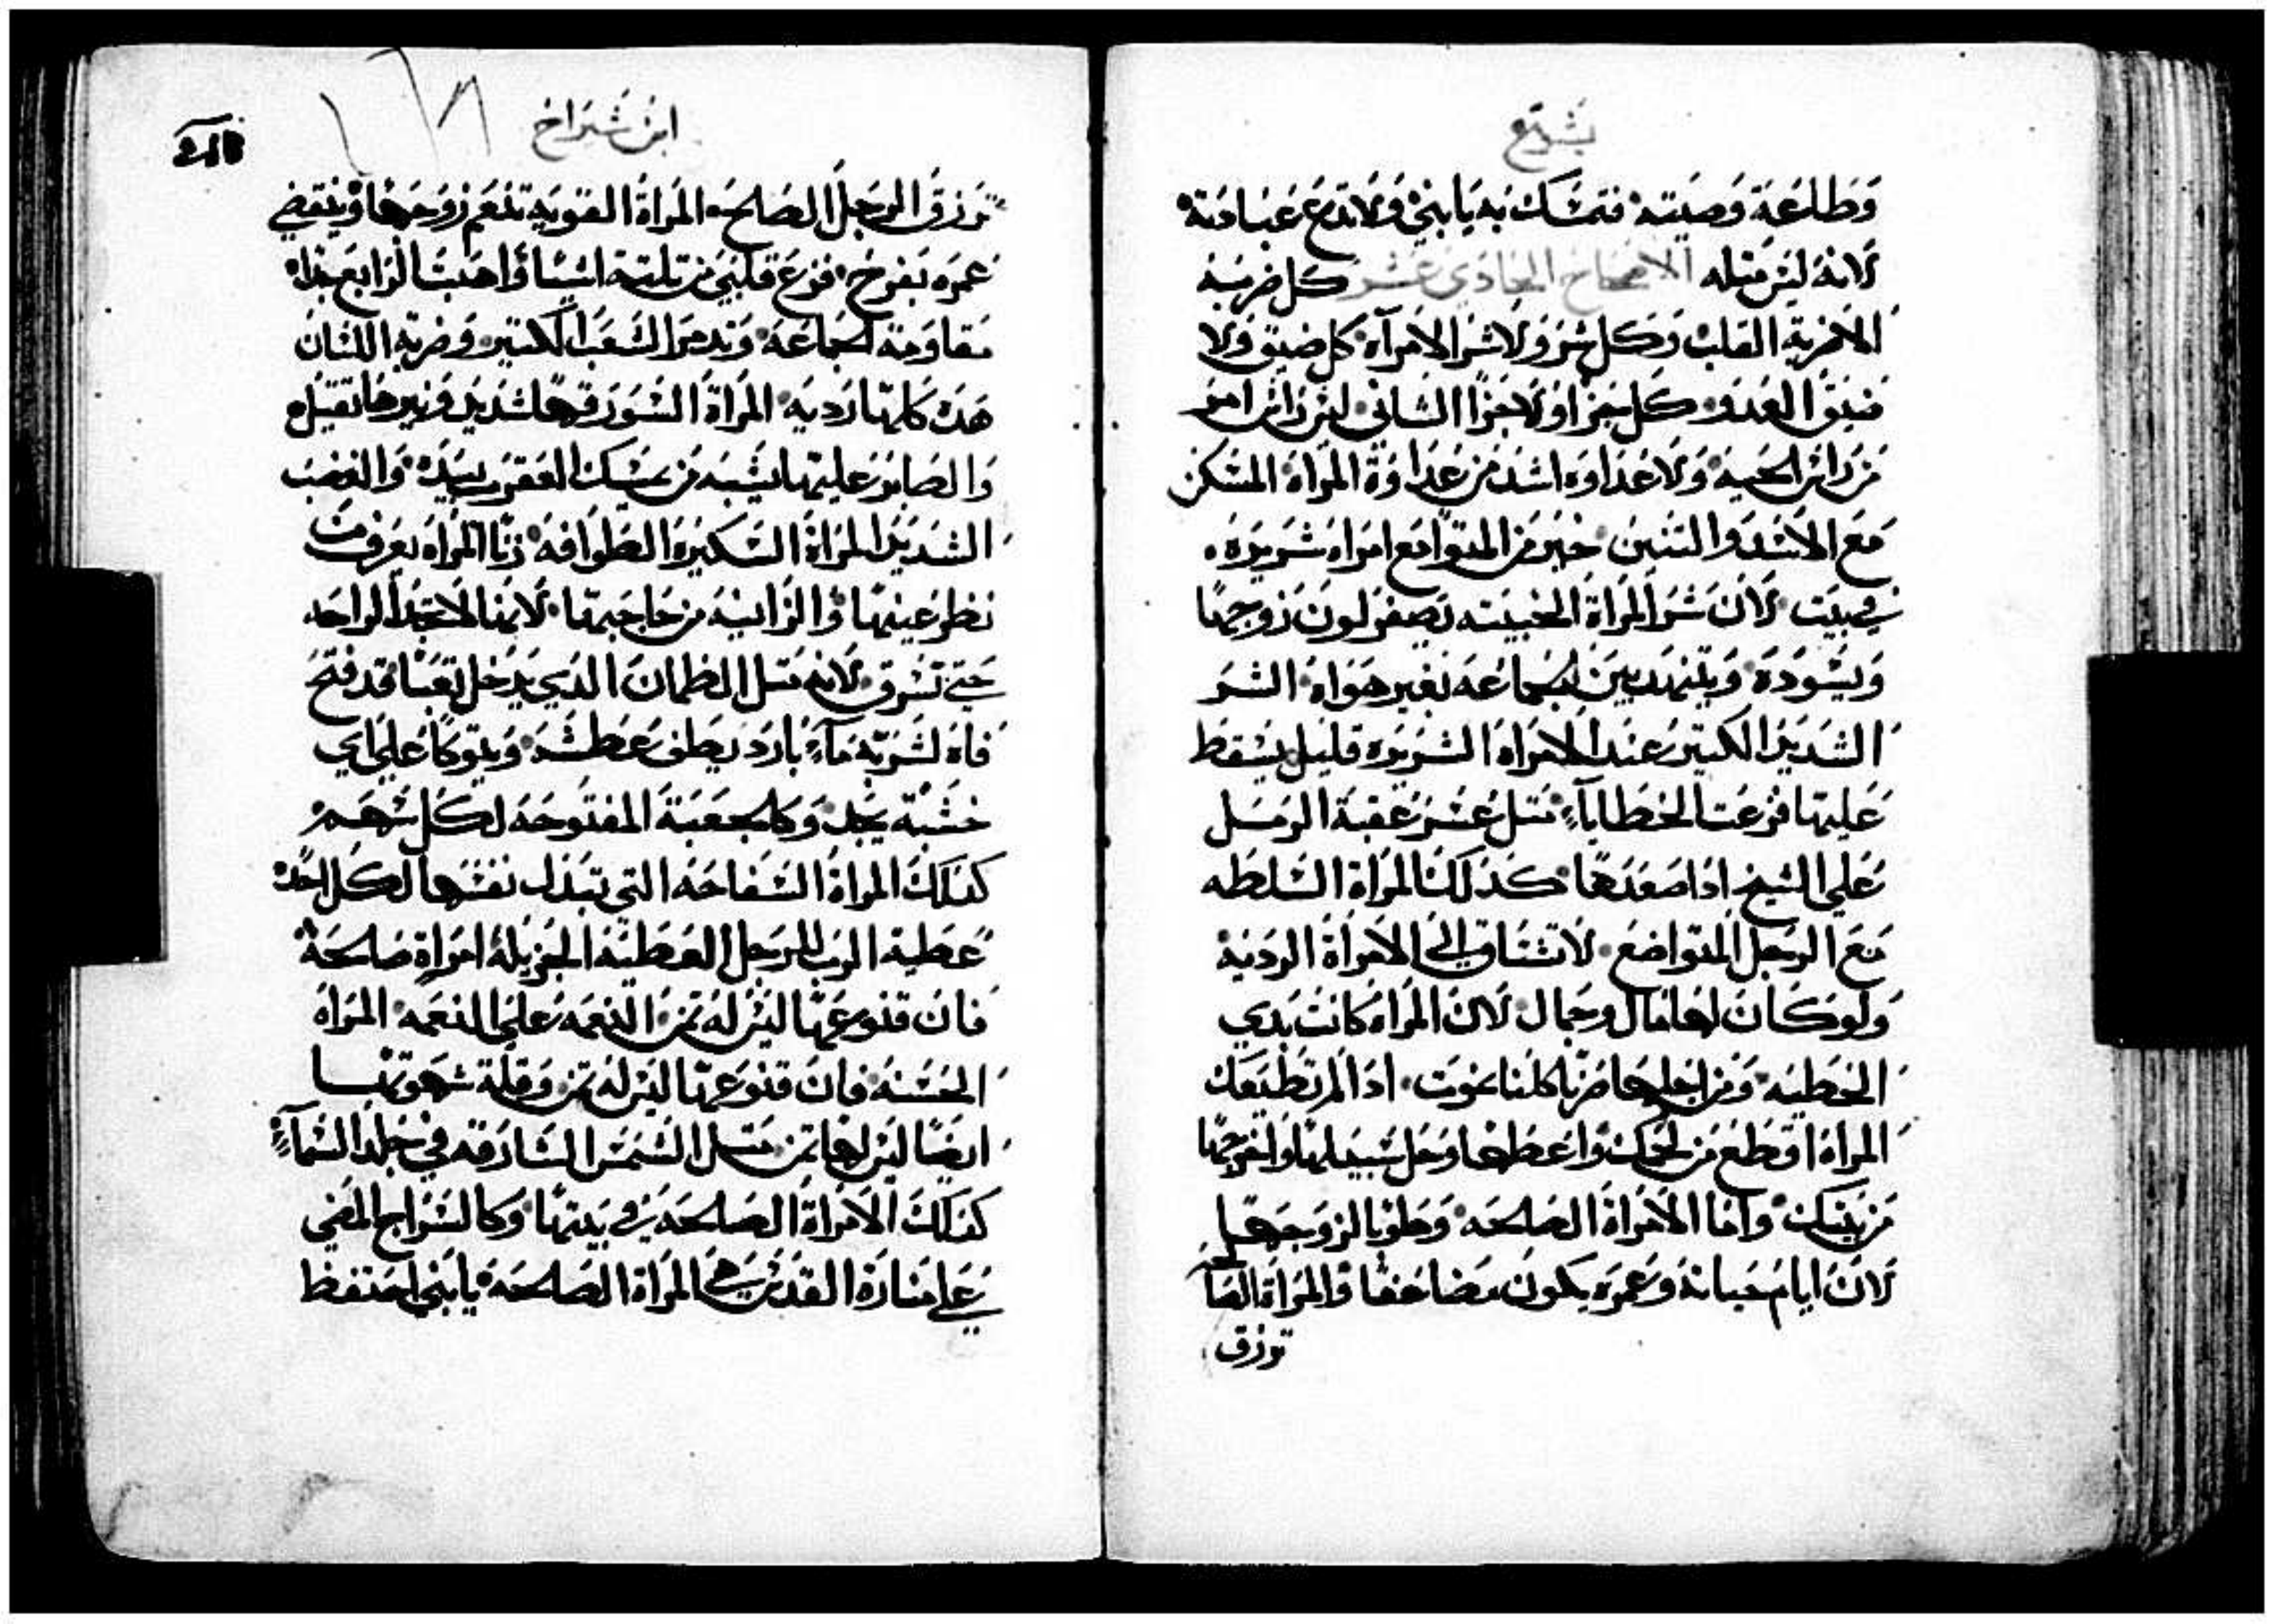 يشوع
وطاعة وصيته فتمسك به يا بني ولا تدع عبادته
لانه ليس مثله الاصحاح الحادي عشر كل ضربه
الا ضربة القلب وكل شر ولا شر الامرآه كل ضيق ولا
ضيق العدو وكل جزا ولا جزا الشاني ليس راس امر
من راس الحيه ولا عداوه اشد من عداوة المراه المسكن
مع الاسد والتنين خير من المتوا مع امراه شريره
في بيت لان شر المراة الخبيته يصفر لون زوجها
ويسوده ويتنهد بين الجماعه بغير هواه الشر
الشديد الكتير عند الامراه الشريره قليل يسقط
عليها قرعت الخطاياء متل عسر عقبة الرمل
علي الشيخ ادا صعدها كدلك المراة السلطه
مع الرجل المتواضع لا تشتاق الي الامراة الرديه
ولو كان لها مال وجمال لان المراه كانت بدي
الخطيه ومن اجلها صرنا كلنا نموت ادا لم تطيعك
المراه اقطع من لحمك واعطها وحل سبيلها واخرجها
من بيتك واما الامراة الصالحه وطوبا لزوجها
لان ايام حياته وعمره يكون مضاعفا والمراة الصا
ترزق
ابن شيراخ
ترزق الرجل الصالح المراة القويه تنعم زوجها وينقضي
عمره بفرح فزع قلبي من تلتة اشيا واهبت الرابع جدا
مقاومة الجماعه وتدمر الشعب الكتير وضربة اللسان
هده كلها رديه المراة السو رقها شديد ونيرها تقيل
والصابر عليها يشبه من يمسك العقرب بيده والغضب
الشديد المراة السكيره الطوافه زنا المراه يعرف من
نظر عينيها والزانيه من حاجبيها لانها لا تجد الواحد
حتي تسرق لانه متل الظمان الدي يدخل تعبا قد فتح
فاه لشربة مآء بارد يطفي عطشه ويتوكا علي اي
خشبة يجد وكالجعبة المفتوحه لكل سهم
كدلك المراة السفاحه التي تبدل نفسها لكل احد
عطية الرب للرجل العطيه الجزيله امراة صالحة
فان قنوعها ليس له تمن النعمه علي النعمه المراه
الحسنه فان قنوعها ليس له تمن وقلة شهوتها
ايضا ليس لها تمن متل الشمس الشارقه في جلد السمآء
كدلك الامراة الصالحه في بيتها وكالسراج المضي
علي منارة القدس هي المراة الصالحه يا بني احتفظ